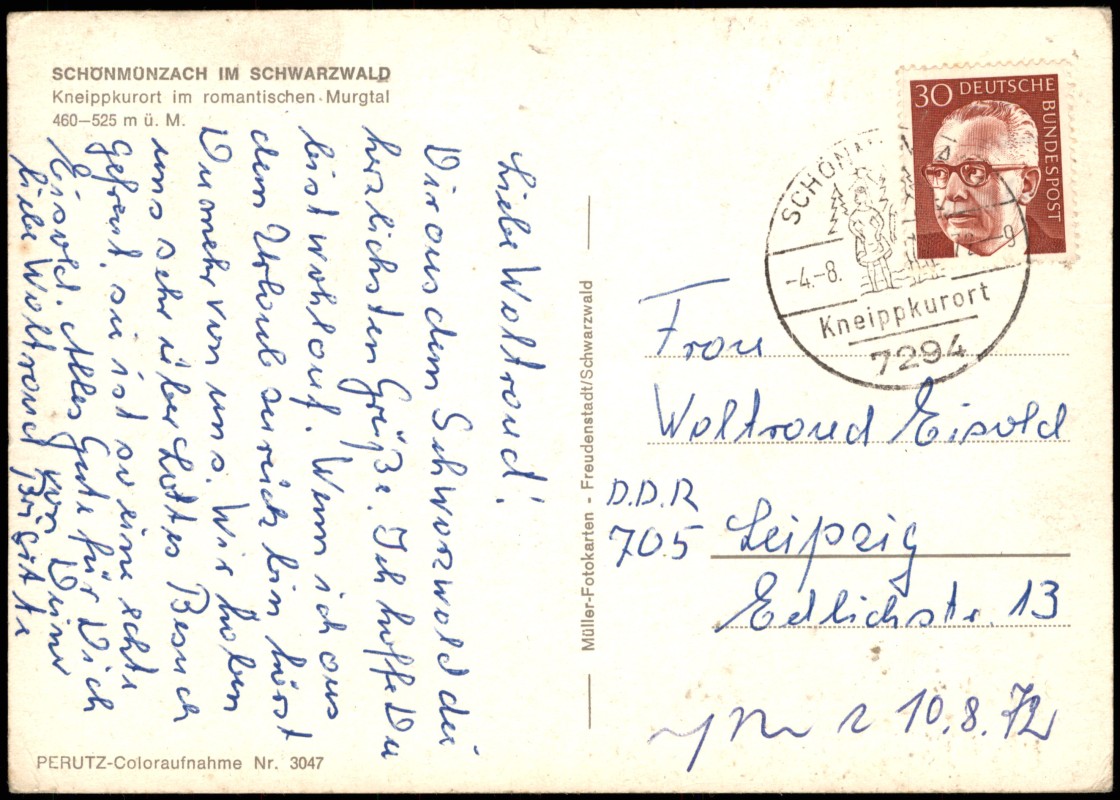 SCHÖNMÜNZACH IM SCHWARZWALD
Kneippkurort im romantischen Murgtal
460–525 m ü. M.
Liebe Waltraud!
Dir aus dem Schwarzwald die
herzlichsten Grüße. Ich hoffe Du
bist wohlauf. Wenn ich aus
dem Urlaub zurück bin hörst
Du mehr von uns. Wir haben
uns sehr über Lottes Besuch
gefreut, sie ist so eine echte
Eisold. Alles Gute für Dich
liebe Waltraud von Deiner
Brigitte
PERUTZ-Coloraufnahme Nr. 3047
Müller-Fotokarten - Freudenstadt/Schwarzwald
30 DEUTSCHE
BUNDESPOST
-4.-8.
-9
Kneippkurort
7294
Frau
Waltraud Eisold
D.D.R
705 Leipzig
Edlichstr. 13
10.8.72